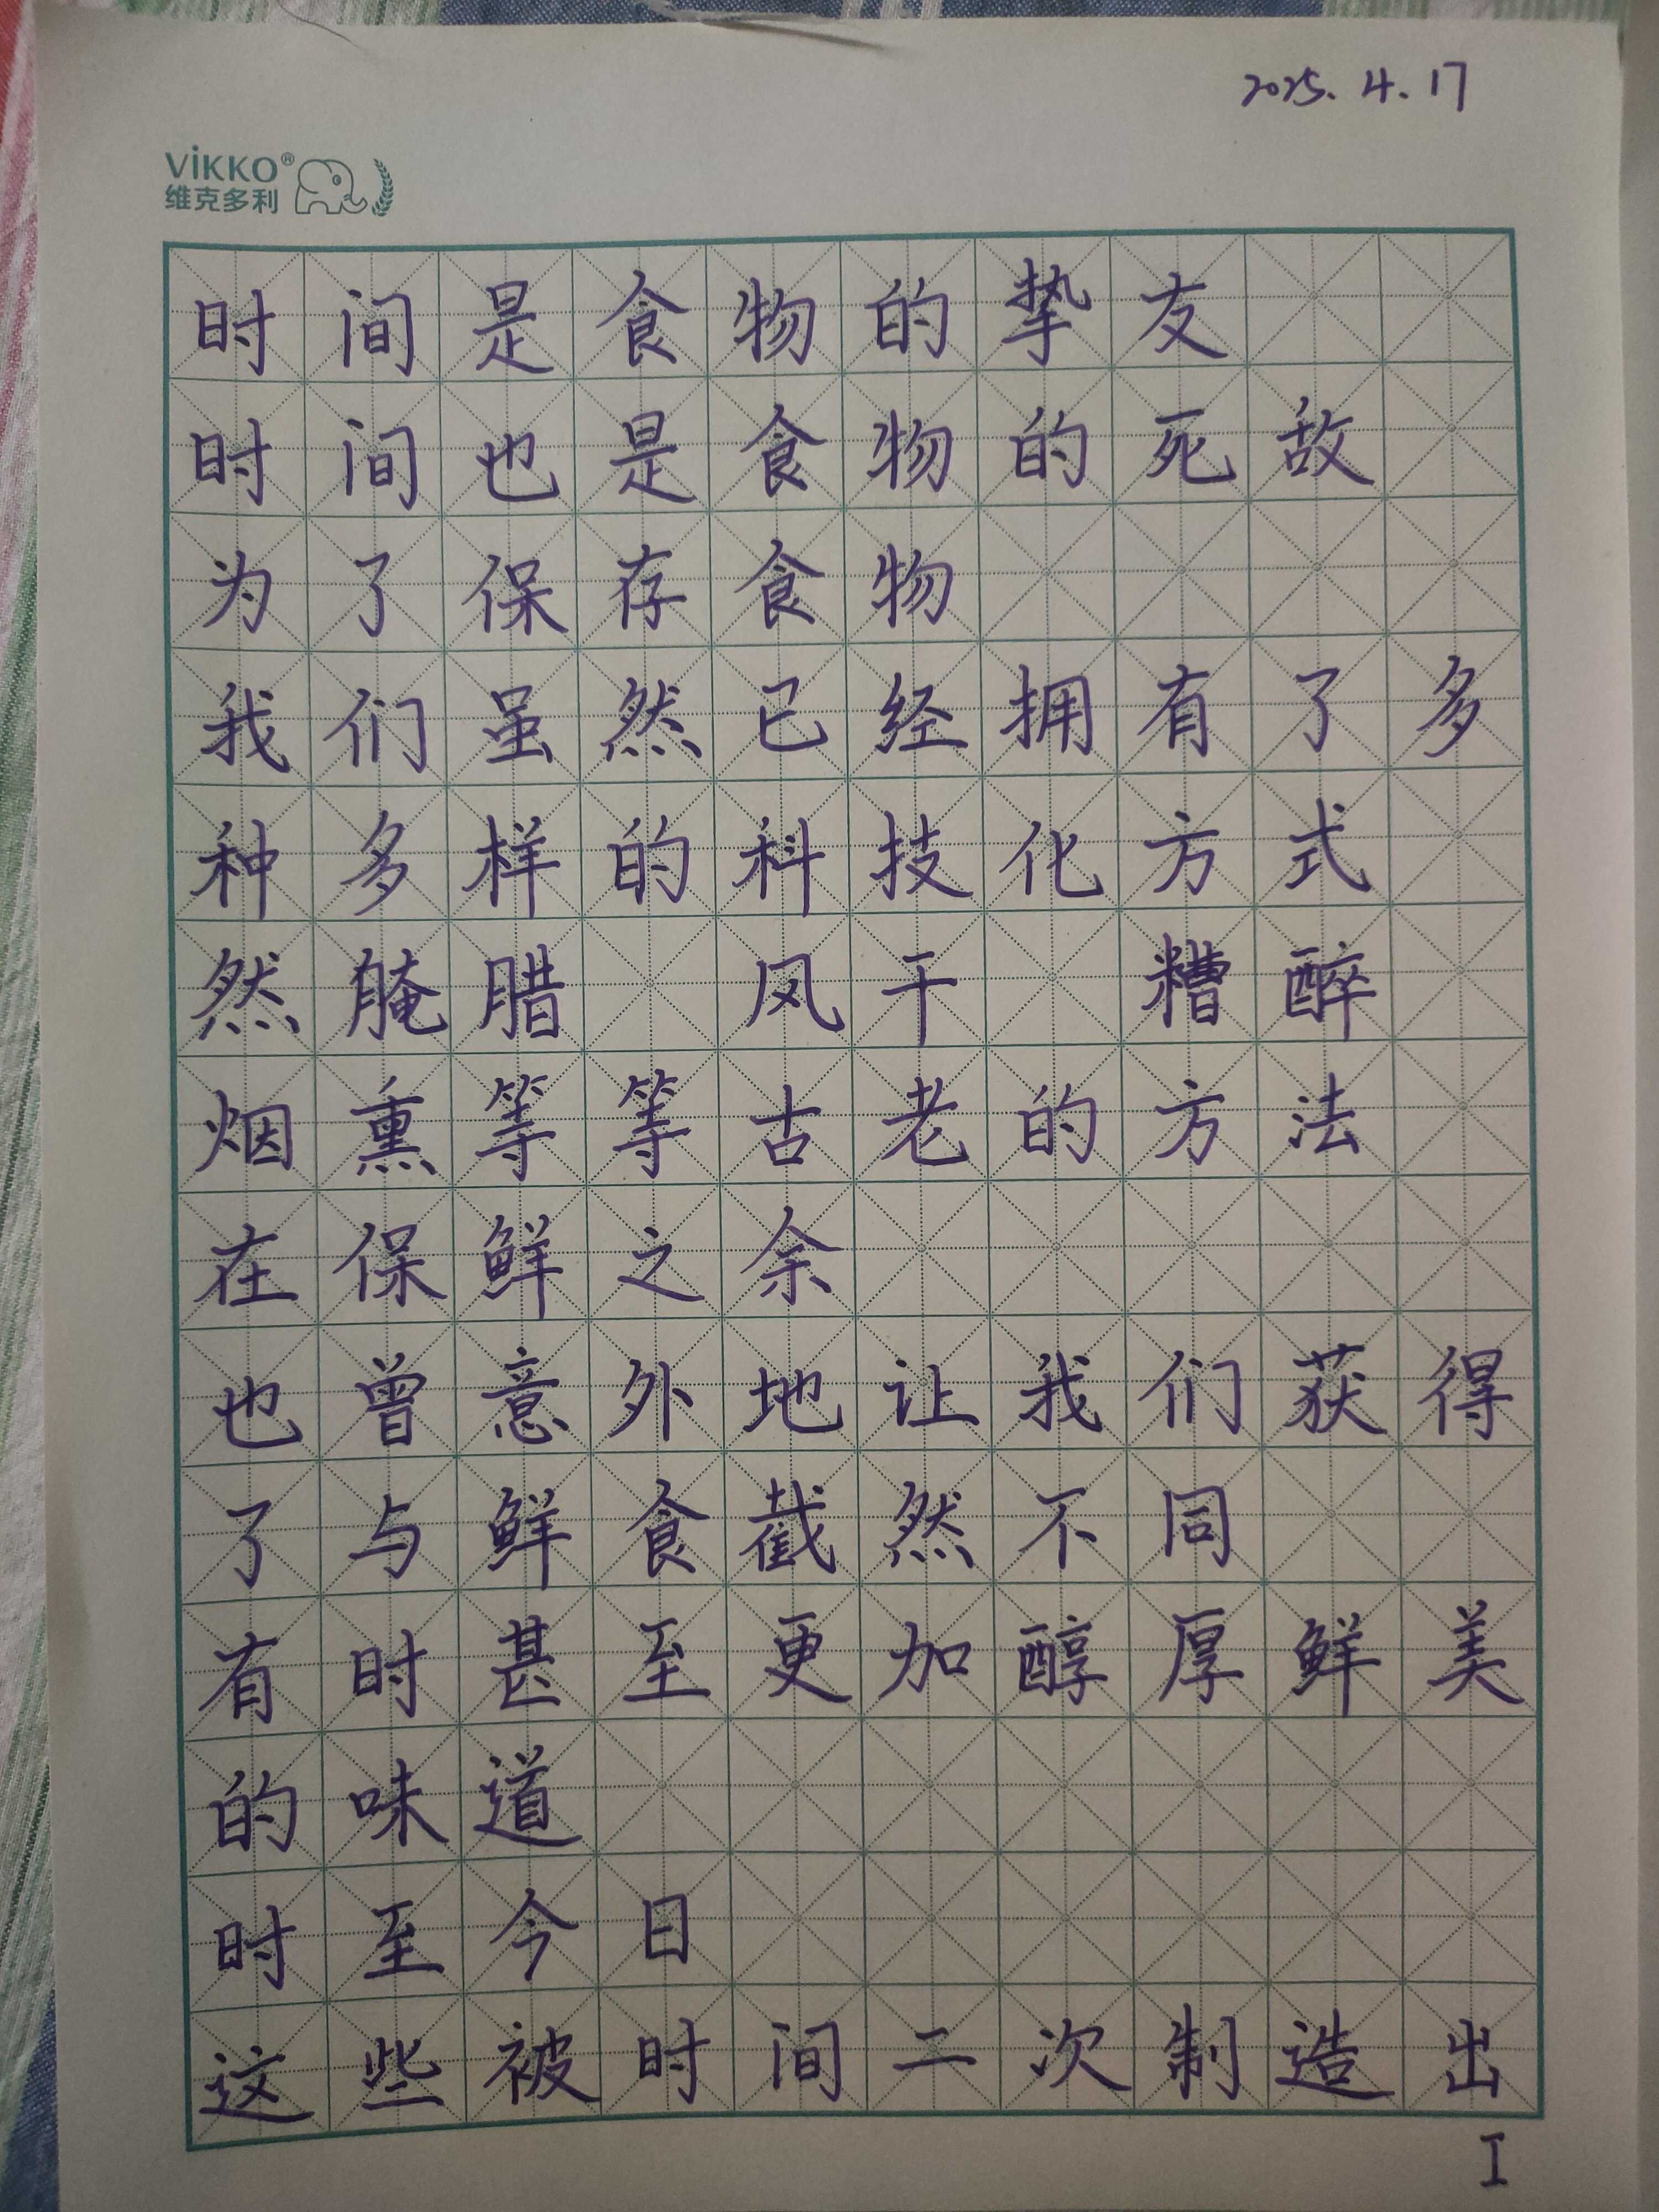 2025.4.17
ViKKO®
维克多利
时间是食物的挚友
时间也是食物的死敌
为了保存食物
我们虽然已经拥有了多
种多样的科技化方式
然腌腊 风干 糟醉
烟熏等等古老的方法
在保鲜之余
也曾意外地让我们获得
了与鲜食截然不同
有时甚至更加醇厚鲜美
的味道
时至今日
这些被时间二次制造出
I